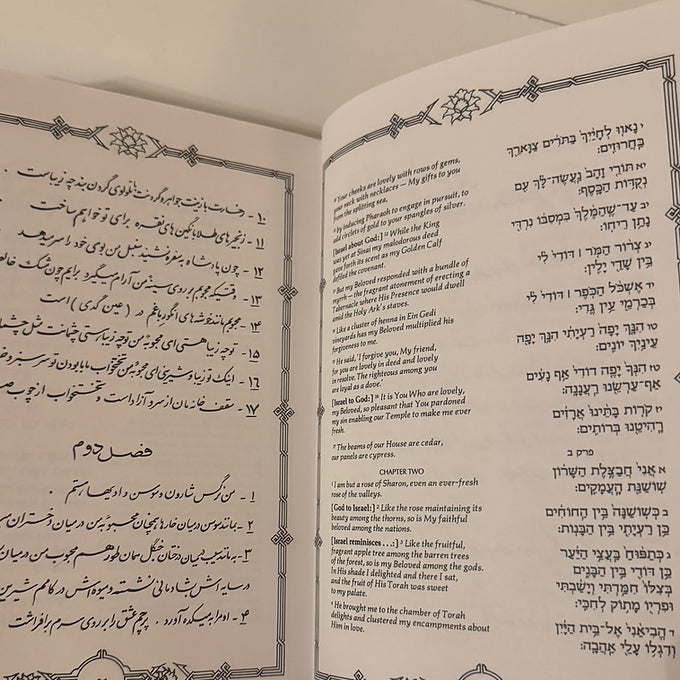 ۱۰ - رخسارت با زینت جواهر و گردنت با طوق گردن بند چه زیباست
۱۱ - زنجیرهای طلا با نگین های نقره برای تو خواهم ساخت
۱۲ - چون پادشاه به سفره نشیند سنبل من بوی خود را سر میدهد
۱۳ - محبوبم بر روی سینه من آرام میگیرد برایم چون مشک
۱۴ - محبوبم مانند خوشه های انگور باغم در (عین گدی) است
۱۵ - توجه زیبا هستی ای محبوبه من توجه زیباستی چشمانت مثل
۱۶ - اینک تو زیبا و شیرینی ای محبوب من تختخواب ما با بودن تو سرسبز
۱۷ - سقف خانه مان از سرو آزاد است و تختخواب از چوب
فصل دوم
۱ - من نرگس شارون و سوسن وادیها هستم .
۲ - مانند سوسن در میان خارها همچنان محبوبه من در میان دختران
۳ - به مانند سیب در میان درختان جنگل سمان طور هم محبوب من در میان
در سایه اش شادمانی نشسته و میوه اش در کامم شیرین
۴ - او مرا به میکده آورد . پرچم عشق را بر روی سرم برافراشت
10 Your cheeks are lovely with rows of gems,
your neck with necklaces — My gifts to you
from the splitting sea,
11 by inducing Pharaoh to engage in pursuit, to
add circlets of gold to your spangles of silver.
[Israel about God:] 12 While the King
was yet at Sinai my malodorous deed
gave forth its scent as my Golden Calf
defiled the covenant.
13 But my Beloved responded with a bundle of
myrrh — the fragrant atonement of erecting a
Tabernacle where His Presence would dwell
amid the Holy Ark's staves.
14 Like a cluster of henna in Ein Gedi
vineyards has my Beloved multiplied his
forgiveness to me.
15 He said, 'I forgive you, My friend,
for you are lovely in deed and lovely
in resolve. The righteous among you
are loyal as a dove.'
[Israel to God:] 16 It is You Who are lovely,
my Beloved, so pleasant that You pardoned
my sin enabling our Temple to make me ever
fresh.
17 The beams of our House are cedar,
our panels are cypress.
CHAPTER TWO
1 I am but a rose of Sharon, even an ever-fresh
rose of the valleys.
[God to Israel:] 2 Like the rose maintaining its
beauty among the thorns, so is My faithful
beloved among the nations.
[Israel reminisces . . .:] 3 Like the fruitful,
fragrant apple tree among the barren trees
of the forest, so is my Beloved among the gods.
In His shade I delighted and there I sat,
and the fruit of His Torah was sweet
to my palate.
4 He brought me to the chamber of Torah
delights and clustered my encampments about
Him in love.
י נָאווּ לְחָיַיִךְ בַּתֹּרִים צַוָּארֵךְ
בַּחֲרוּזִים:
יא תּוֹרֵי זָהָב נַעֲשֶׂה־לָּךְ עִם
נְקֻדּוֹת הַכָּסֶף:
יב עַד־שֶׁהַמֶּלֶךְ בִּמְסִבּוֹ נִרְדִּי
נָתַן רֵיחוֹ:
יג צְרוֹר הַמֹּר ׀ דּוֹדִי לִי
בֵּין שָׁדַי יָלִין:
יד אֶשְׁכֹּל הַכֹּפֶר ׀ דּוֹדִי לִי
בְּכַרְמֵי עֵין גֶּדִי:
טו הִנָּךְ יָפָה רַעְיָתִי הִנָּךְ יָפָה
עֵינַיִךְ יוֹנִים:
טז הִנְּךָ יָפֶה דוֹדִי אַף נָעִים
אַף־עַרְשֵׂנוּ רַעֲנָנָה:
יז קֹרוֹת בָּתֵּינוּ אֲרָזִים
רַהִיטֵנוּ בְּרוֹתִים:
פרק ב
א אֲנִי חֲבַצֶּלֶת הַשָּׁרוֹן
שׁוֹשַׁנַּת הָעֲמָקִים:
ב כְּשׁוֹשַׁנָּה בֵּין הַחוֹחִים
כֵּן רַעְיָתִי בֵּין הַבָּנוֹת:
ג כְּתַפּוּחַ בַּעֲצֵי הַיַּעַר
כֵּן דּוֹדִי בֵּין הַבָּנִים
בְּצִלּוֹ חִמַּדְתִּי וְיָשַׁבְתִּי
וּפִרְיוֹ מָתוֹק לְחִכִּי:
ד הֱבִיאַנִי אֶל־בֵּית הַיַּיִן
וְדִגְלוֹ עָלַי אַהֲבָה: